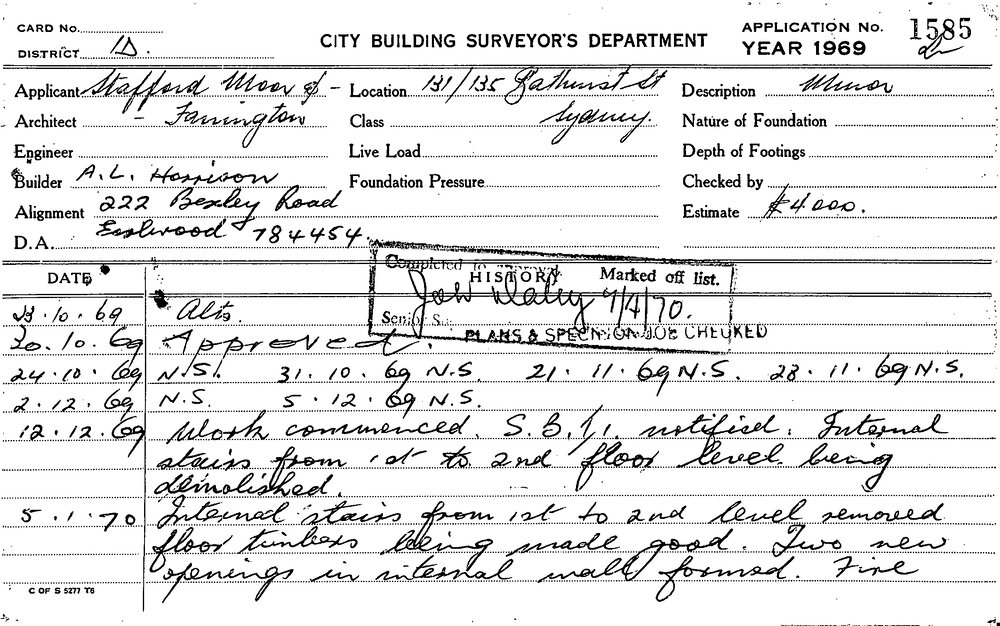 CARD No.
DISTRICT 1D.
CITY BUILDING SURVEYOR'S DEPARTMENT
APPLICATION No. 1585
YEAR 1969
Applicant Stafford Moor & -
Location 131/135 Bathurst St
Description Minor
Architect - Farrington
Class Sydney.
Nature of Foundation
Engineer
Live Load
Depth of Footings
Builder A.L. Harrison
Foundation Pressure
Checked by
Alignment 222 Bexley Road
Estimate $4000.
D.A. Earlwood 784454.
DATE
HISTORY
Completed Marked off list.
9/4/70.
Senior
PLANS & SPECN ON JOB CHECKED
.10.69 Alts.
20.10.69 Approved.
24.10.69 N.S. 31.10.69 N.S. 21.11.69 N.S. 28.11.69 N.S.
2.12.69 N.S. 5.12.69 N.S.
12.12.69 Work commenced. S.B.I. notified. Internal
stairs from 1st to 2nd floor level being
demolished.
5.1.70 Internal stairs from 1st to 2nd level removed
floor timbers being made good. Two new
openings in internal wall formed. Fire
C OF S 5277 T6